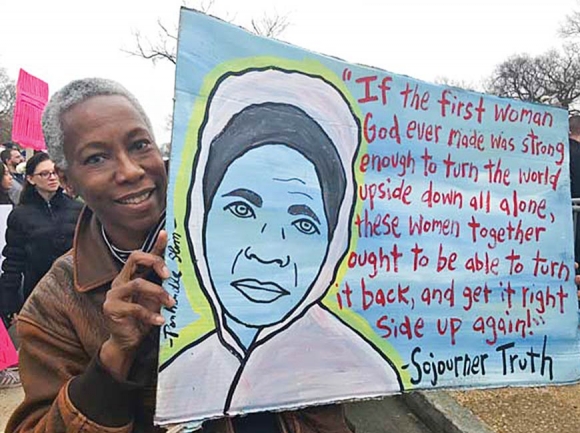 "If the first Woman
God ever made was strong
enough to turn the world
upside down all alone,
these women together
ought to be able to turn
it back, and get it right
side up again!"
- Sojourner Truth